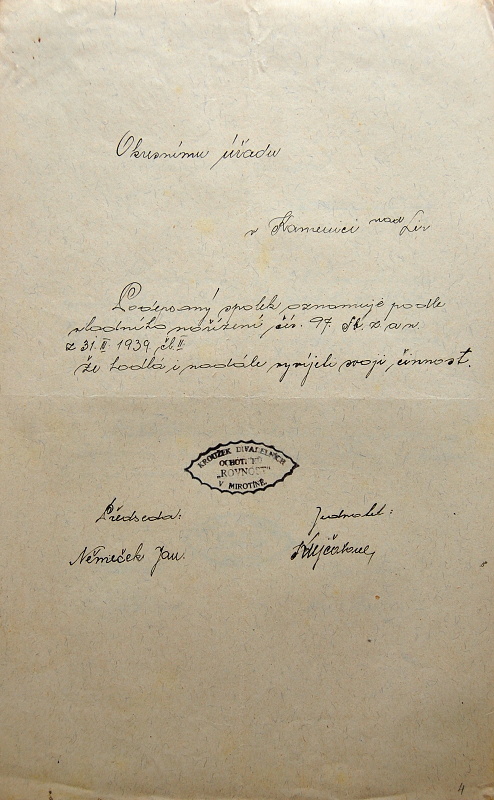 Okresnímu úřadu
v Kamenici nad Lip
Podepsaný spolek oznamuje podle
vladního nařízení čís. 97. Sb. z. a n.
z 31. III 1939, čl. II
že hodlá i nadále vyvíjeti svoji činnost.
KROUŽEK DIVADELNÍCH
OCHOTNÍKŮ
„ROVNOST"
V MIROTÍNĚ.
Předseda: Jednatel:
Němeček Jan.
4